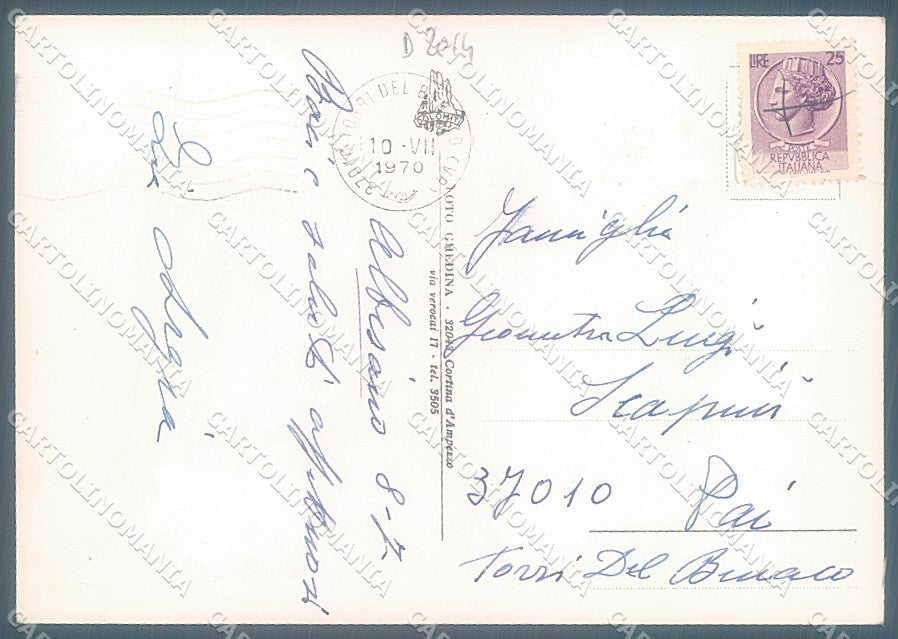 D 2014
LIRE 25
POSTE
REPVBBLICA
ITALIANA
37010 TORRI DEL B
10 -VII
1970
DOLOMITI
FOTO GHEDINA - 32043 Cortina d'Ampezzo
via verocai 17 - tel. 3505
Albisano 8-7-
Baci e saluti affettuosi
Famiglia
Geometra Luigi
Scapini
37010 Pai
Torri Del Benaco
CARTOLINOMANIA